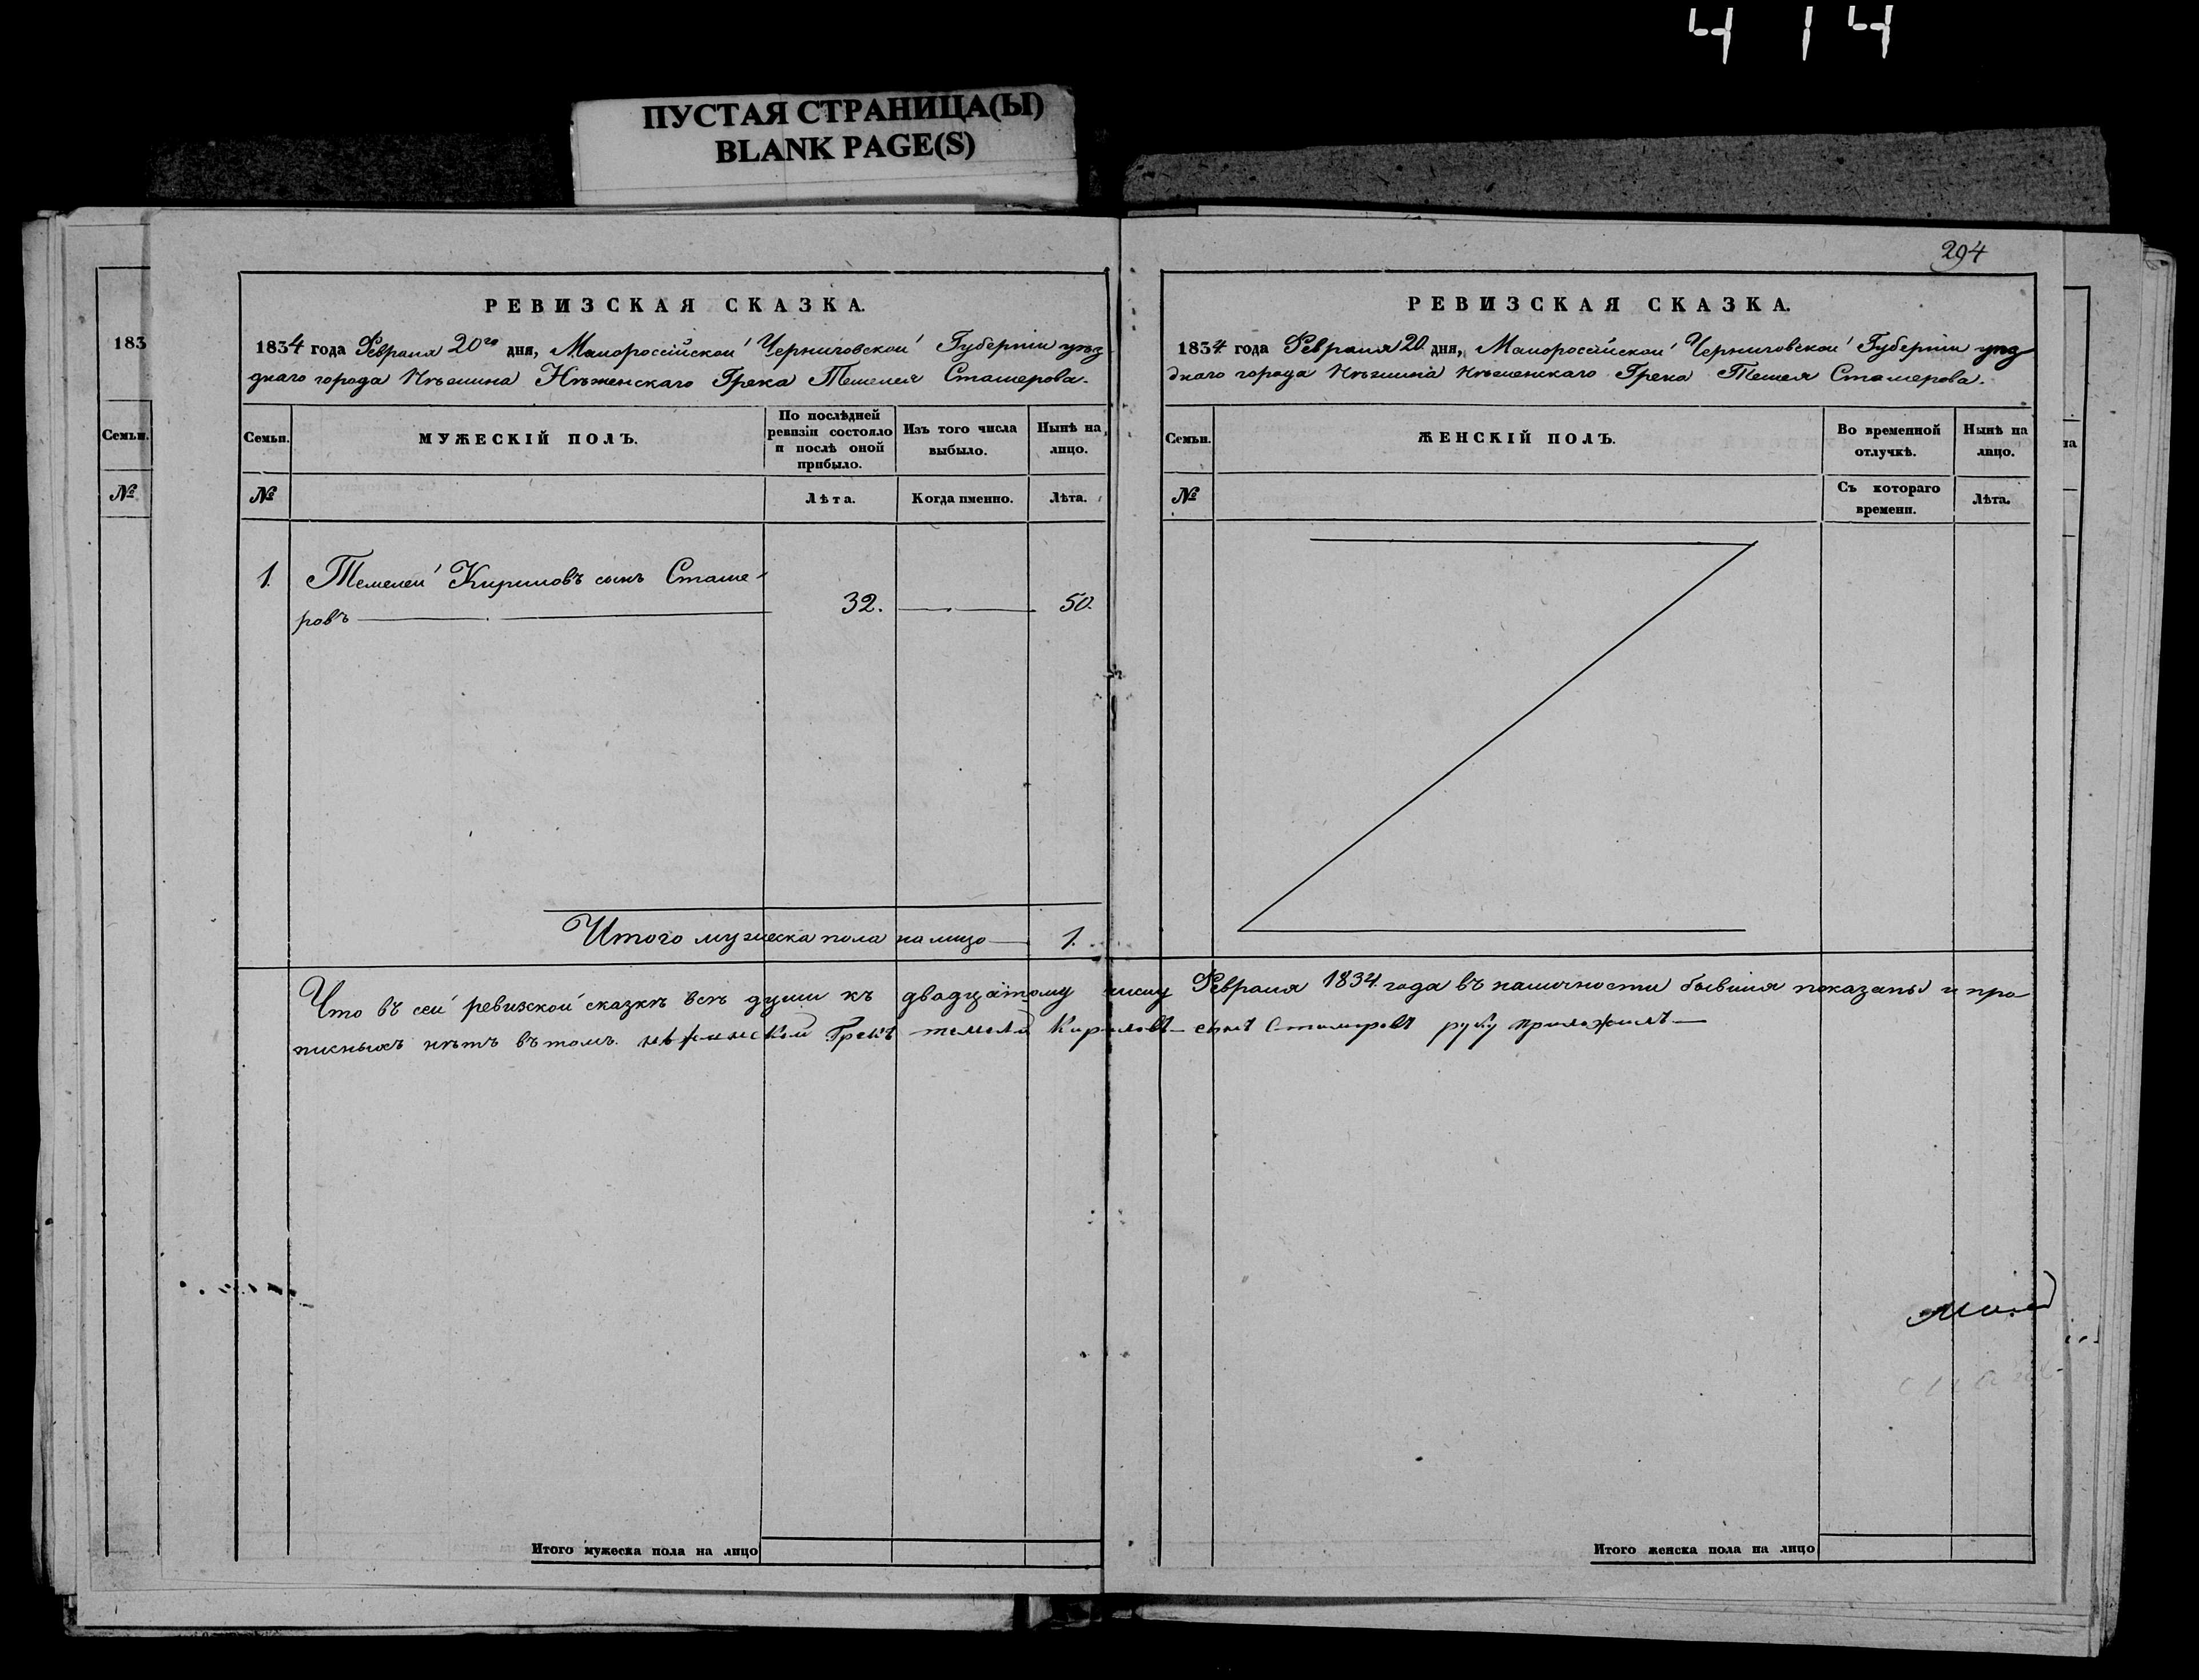 4 14
ПУСТАЯ СТРАНИЦА(Ы)
BLANK PAGE(S)
183
Семьи.
№
РЕВИЗСКАЯ СКАЗКА.
1834 года Февраля 20го дня, Малороссійской Черниговской Губерніи уѣз
днаго города Нѣжина Нѣженскаго Грека Темелея Стамерова.
Семьи.
МУЖЕСКІЙ ПОЛЪ.
По послѣдней
ревизіи состояло
и послѣ оной
прибыло.
Изъ того числа
выбыло.
Нынѣ на
лицо.
№
Лѣта.
Когда именно.
Лѣта.
1. Темелей Кириловъ сынъ Стаме-
ровъ 32. 50.
Итого мужеска пола на лицо 1.
294
РЕВИЗСКАЯ СКАЗКА.
1834 года Февраля 20 дня, Малоросейской Черниговской Губерніи уѣз
днаго города Нѣжина Нѣженскаго Грека Темелея Стамерова.
Семьи.
ЖЕНСКІЙ ПОЛЪ.
Во временной
отлучкѣ.
Нынѣ на
лицо.
№
Съ котораго
времени.
Лѣта.
на
Что въ сей ревизской сказкѣ всѣ души къ двадцатому числу Февраля 1834 года въ наличности бывшія показаны и про
писныхъ нѣтъ въ томъ. нѣжинской Грекъ темелей Кириловъ сынъ Стамеровъ руку приложилъ
Итого мужеска пола на лицо
Итого женска пола на лицо